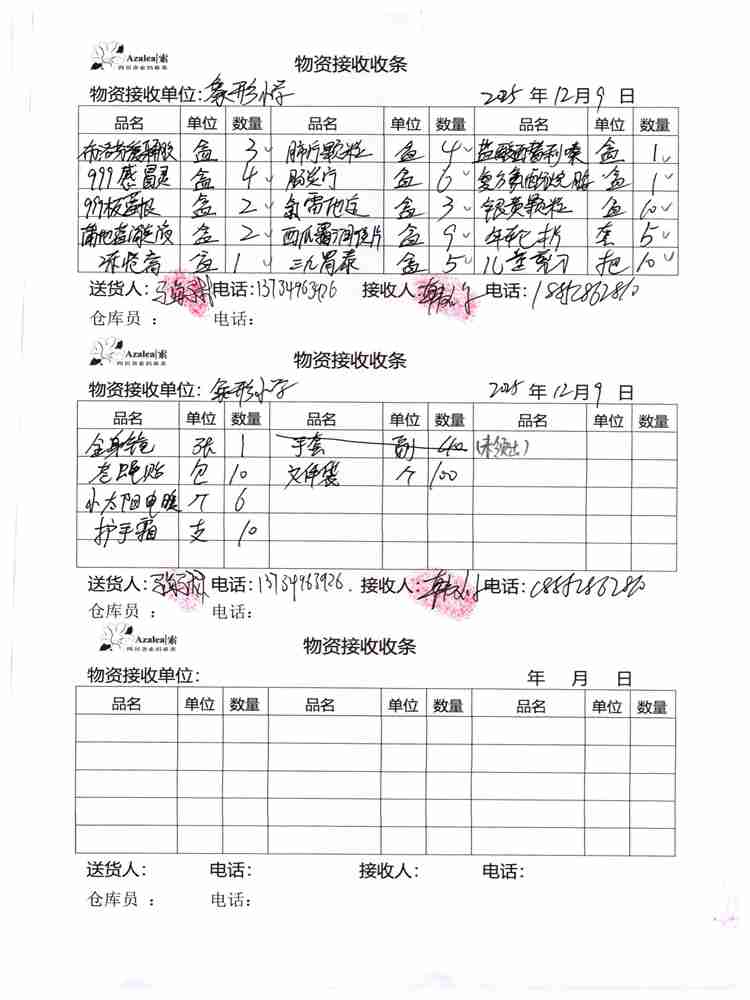 Azalea|索
物资接收收条
物资接收单位:象形小学 2025 年 12月 9 日
品名 单位 数量 品名 单位 数量 品名 单位 数量
盒 3 肺疗颗粒 盒 4 盐酸西替利嗪 盒 1
999感冒灵 盒 4 肠炎宁 盒 6 盒 1
999板蓝根 盒 2 氯雷他定 盒 3 银黄颗粒 盒 10
蒲地蓝消炎液 盒 2 西瓜霜润喉片 盒 9 套 5
冻疮膏 盒 1 三九胃泰 盒 5 儿童剪刀 把 10
送货人: 电话:13734963926 接收人: 电话:18852862810
仓库员 : 电话:
Azalea|索
物资接收收条
物资接收单位:象形小学 2025 年 12月 9 日
品名 单位 数量 品名 单位 数量 品名 单位 数量
全身镜 张 1 手套 副 40
包 10 文件袋 个 100
小太阳电暖 个 6
护手霜 支 10
送货人: 电话:13734963926. 接收人: 电话:18852862810
仓库员 : 电话:
Azalea|索
物资接收收条
物资接收单位: 年 月 日
品名 单位 数量 品名 单位 数量 品名 单位 数量
送货人: 电话: 接收人: 电话:
仓库员 : 电话: